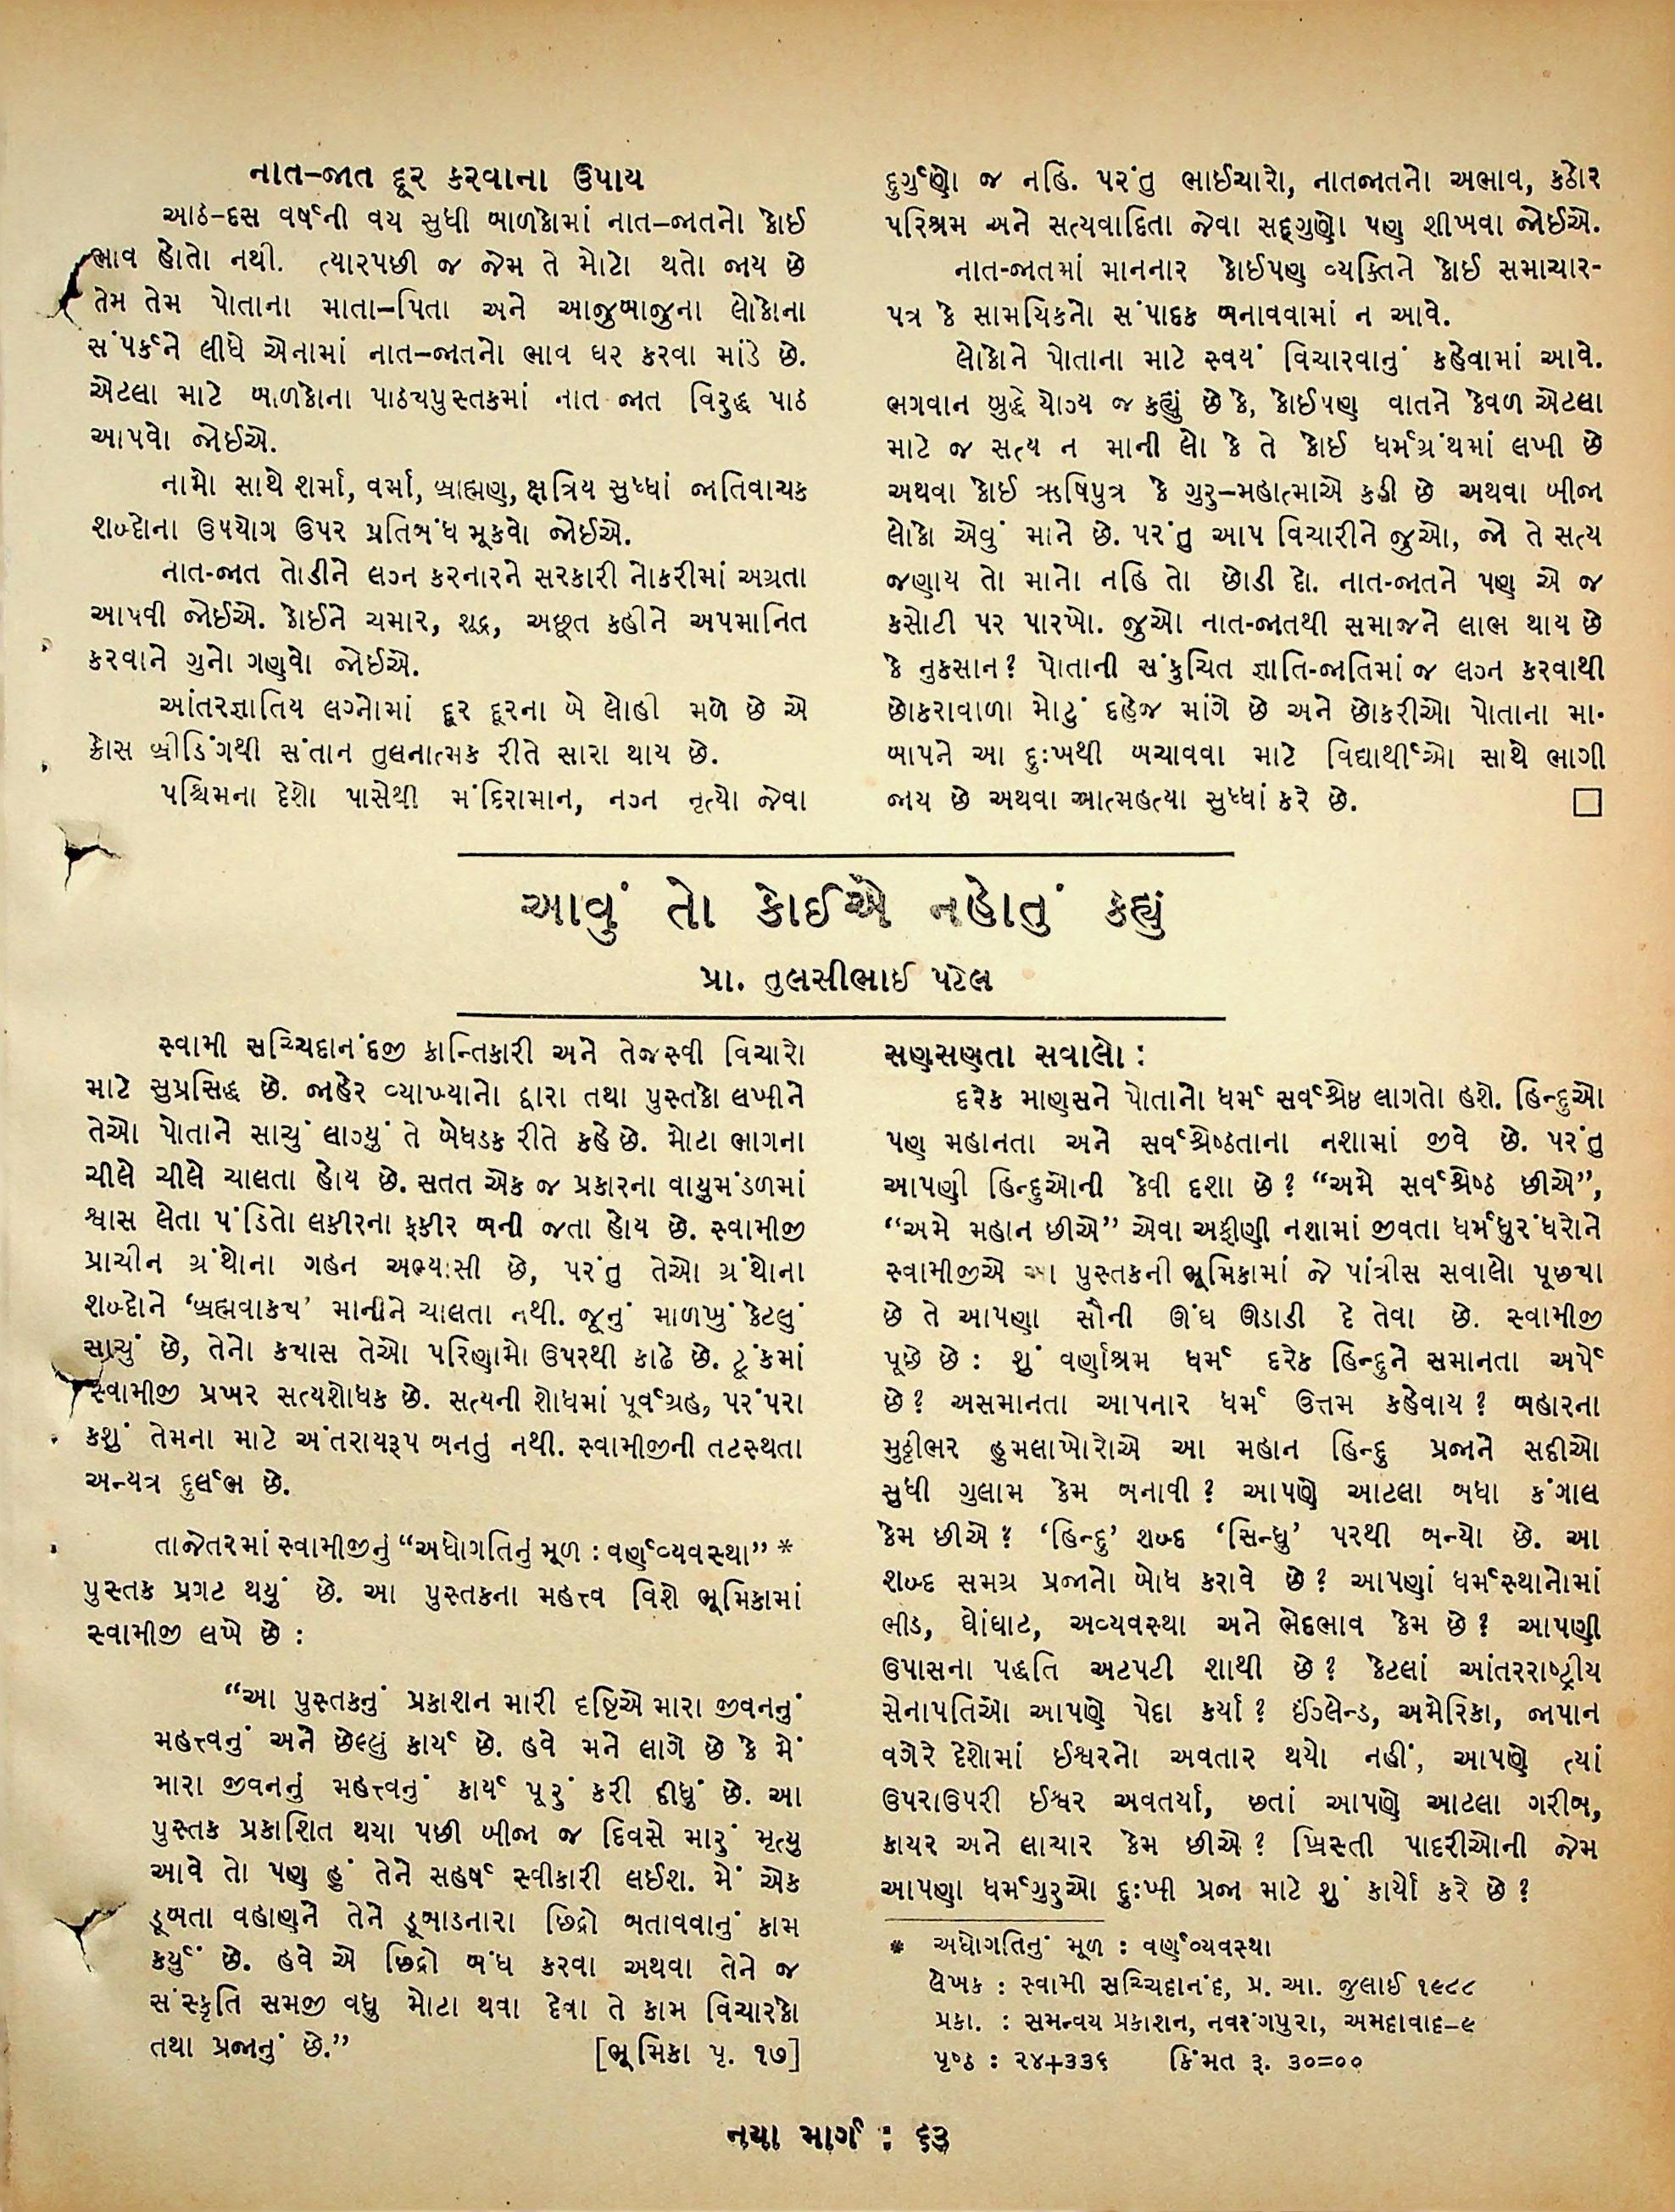 નાત–જાત દૂર કરવાના ઉપાય
આઠ-દસ વર્ષની વય સુધી બાળકોમાં નાત–જાતનો કોઈ
ભાવ હોતો નથી. ત્યારપછી જ જેમ તે મોટો થતો જાય છે
તેમ તેમ પોતાના માતા–પિતા અને આજુબાજુના લોકોના
સંપર્કને લીધે એનામાં નાત–જાતનો ભાવ ઘર કરવા માંડે છે.
એટલા માટે બાળકોના પાઠ્યપુસ્તકમાં નાત જાત વિરુદ્ધ પાઠ
આપવો જોઈએ.
નામો સાથે શર્મા, વર્મા, બ્રાહ્મણ, ક્ષત્રિય સુધ્ધાં જાતિવાચક
શબ્દોના ઉપયોગ ઉપર પ્રતિબંધ મૂકવો જોઈએ.
નાત-જાત તોડીને લગ્ન કરનારને સરકારી નોકરીમાં અગ્રતા
આપવી જોઈએ. કોઈને ચમાર, શૂદ્ર, અછૂત કહીને અપમાનિત
કરવાને ગુનો ગણવો જોઈએ.
આંતરજ્ઞાતિય લગ્નોમાં દૂર દૂરના બે લોહી મળે છે એ
ક્રોસ બ્રીડિંગથી સંતાન તુલનાત્મક રીતે સારા થાય છે.
પશ્ચિમના દેશો પાસેથી મંદિરામાન, નગ્ન નૃત્યો જેવા
દુર્ગુણો જ નહિ. પરંતુ ભાઈચારો, નાતજાતનો અભાવ, કઠોર
પરિશ્રમ અને સત્યવાદિતા જેવા સદ્ગુણો પણ શીખવા જોઈએ.
નાત-જાતમાં માનનાર કોઈપણ વ્યક્તિને કોઈ સમાચાર-
પત્ર કે સામયિકનો સંપાદક બનાવવામાં ન આવે.
લોકોને પોતાના માટે સ્વયં વિચારવાનું કહેવામાં આવે.
ભગવાન બુદ્ધે યોગ્ય જ કહ્યું છે કે, કોઈપણ વાતને કેવળ એટલા
માટે જ સત્ય ન માની લો કે તે કોઈ ધર્મગ્રંથમાં લખી છે
અથવા કોઈ ઋષિપુત્ર કે ગુરુ–મહાત્માએ કહી છે અથવા બીજા
લોકો એવું માને છે. પરંતુ આપ વિચારીને જુઓ, જો તે સત્ય
જણાય તો માનો નહિ તો છોડી દો. નાત-જાતને પણ એ જ
કસોટી પર પારખો. જુઓ નાત-જાતથી સમાજને લાભ થાય છે
કે નુકસાન? પોતાની સંકુચિત જ્ઞાતિ-જાતિમાં જ લગ્ન કરવાથી
છોકરાવાળા મોટું દહેજ માંગે છે અને છોકરીઓ પોતાના મા-
બાપને આ દુઃખથી બચાવવા માટે વિદ્યાર્થીઓ સાથે ભાગી
જાય છે અથવા આત્મહત્યા સુધ્ધાં કરે છે.
આવું તો કોઈએ નહોતું કહ્યું
પ્રા. તુલસીભાઈ પટેલ
સ્વામી સચ્ચિદાનંદજી ક્રાન્તિકારી અને તેજસ્વી વિચારો
માટે સુપ્રસિદ્ધ છે. જાહેર વ્યાખ્યાનો દ્વારા તથા પુસ્તકો લખીને
તેઓ પોતાને સાચું લાગ્યું તે બેધડક રીતે કહે છે. મોટા ભાગના
ચીલે ચીલે ચાલતા હોય છે. સતત એક જ પ્રકારના વાયુમંડળમાં
શ્વાસ લેતા પંડિતો લકીરના ફકીર બની જતા હોય છે. સ્વામીજી
પ્રાચીન ગ્રંથોના ગહન અભ્યાસી છે, પરંતુ તેઓ ગ્રંથોના
શબ્દોને ‘બ્રહ્મવાક્ય’ માનીને ચાલતા નથી. જૂનું માળખું કેટલું
સાચું છે, તેનો ક્યાસ તેઓ પરિણામો ઉપરથી કાઢે છે. ટૂંકમાં
સ્વામીજી પ્રખર સત્યશોધક છે. સત્યની શોધમાં પૂર્વગ્રહ, પરંપરા
કશું તેમના માટે અંતરાયરૂપ બનતું નથી. સ્વામીજીની તટસ્થતા
અન્યત્ર દુર્લભ છે.
તાજેતરમાં સ્વામીજીનું “અધોગતિનું મૂળ : વર્ણવ્યવસ્થા” *
પુસ્તક પ્રગટ થયું છે. આ પુસ્તકના મહત્ત્વ વિશે ભૂમિકામાં
સ્વામીજી લખે છે :
“આ પુસ્તકનું પ્રકાશન મારી દૃષ્ટિએ મારા જીવનનું
મહત્ત્વનું અને છેલ્લું કાર્ય છે. હવે મને લાગે છે કે મેં
મારા જીવનનું મહત્ત્વનું કાર્ય પૂરું કરી દીધું છે. આ
પુસ્તક પ્રકાશિત થયા પછી બીજા જ દિવસે મારું મૃત્યુ
આવે તો પણ હું તેને સહર્ષ સ્વીકારી લઈશ. મેં એક
ડૂબતા વહાણને તેને ડૂબાડનારા છિદ્રો બતાવવાનું કામ
કર્યું છે. હવે એ છિદ્રો બંધ કરવા અથવા તેને જ
સંસ્કૃતિ સમજી વધુ મોટા થવા દેવા તે કામ વિચારકો
તથા પ્રજાનું છે.” [ભૂમિકા પૃ. ૧૭]
સણસણતા સવાલો :
દરેક માણસને પોતાનો ધર્મ સર્વશ્રેષ્ઠ લાગતો હશે. હિન્દુઓ
પણ મહાનતા અને સર્વશ્રેષ્ઠતાના નશામાં જીવે છે. પરંતુ
આપણી હિન્દુઓની કેવી દશા છે? “અમે સર્વશ્રેષ્ઠ છીએ”,
“અમે મહાન છીએ” એવા અફીણી નશામાં જીવતા ધર્મધુરંધરોને
સ્વામીજીએ આ પુસ્તકની ભૂમિકામાં જે પાંત્રીસ સવાલો પૂછ્યા
છે તે આપણા સૌની ઊંઘ ઊડાડી દે તેવા છે. સ્વામીજી
પૂછે છે : શું વર્ણાશ્રમ ધર્મ દરેક હિન્દુને સમાનતા અર્પે
છે? અસમાનતા આપનાર ધર્મ ઉત્તમ કહેવાય? બહારના
મુઠ્ઠીભર હુમલાખોરોએ આ મહાન હિન્દુ પ્રજાને સદીઓ
સુધી ગુલામ કેમ બનાવી? આપણે આટલા બધા કંગાલ
કેમ છીએ? ‘હિન્દુ’ શબ્દ ‘સિન્ધુ’ પરથી બન્યો છે. આ
શબ્દ સમગ્ર પ્રજાનો બોધ કરાવે છે? આપણાં ધર્મસ્થાનોમાં
ભીડ, ઘોંઘાટ, અવ્યવસ્થા અને ભેદભાવ કેમ છે? આપણી
ઉપાસના પદ્ધતિ અટપટી શાથી છે? કેટલાં આંતરરાષ્ટ્રીય
સેનાપતિઓ આપણે પેદા કર્યા? ઈંગ્લેન્ડ, અમેરિકા, જાપાન
વગેરે દેશોમાં ઈશ્વરનો અવતાર થયો નહીં, આપણે ત્યાં
ઉપરાઉપરી ઈશ્વર અવતર્યા, છતાં આપણે આટલા ગરીબ,
કાયર અને લાચાર કેમ છીએ? ખ્રિસ્તી પાદરીઓની જેમ
આપણા ધર્મગુરુઓ દુઃખી પ્રજા માટે શું કાર્યો કરે છે?
* અધોગતિનું મૂળ : વર્ણવ્યવસ્થા
લેખક : સ્વામી સચ્ચિદાનંદ, પ્ર. આ. જુલાઈ ૧૯૮૮
પ્રકા. : સમન્વય પ્રકાશન, નવરંગપુરા, અમદાવાદ–૯
પૃષ્ઠ : ૨૪+૩૩૬ કિંમત રૂ. ૩૦=૦૦
નયા માર્ગ : ૬૩